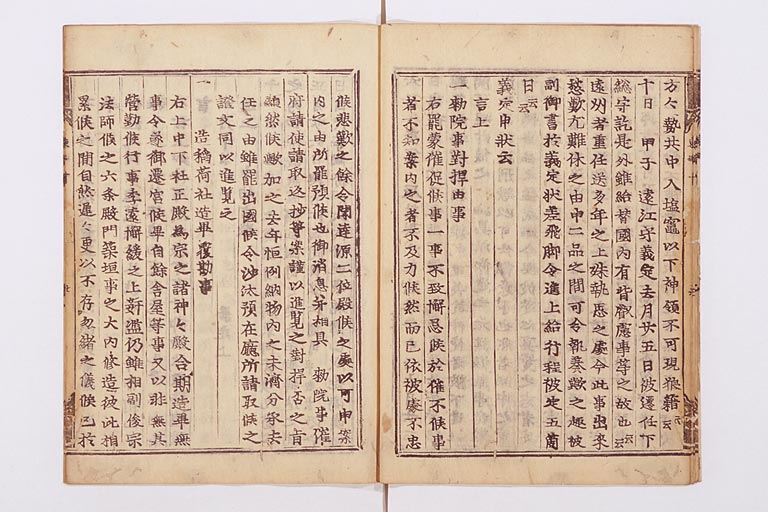 方々勢共中入塩竈以下神領不可現狼籍云云
十日 甲子 遠江守義定去月廿五日被遷任下
総守訖是外雖給替國内有背叡慮事等之故也云云
遠州者重任送多年之上殊執思之處今此事出来
愁歎尤難休之由申二品之間可令執奏歟之趣被
副御書於義定状差飛脚令進上給行程被定五箇
日云云
義定申状云
言上
一勅院事對捍由事
右罷蒙催促候事一事不致懈怠候於催不候事
者不知案内之者不及力候然而已依被處不忠
候悲歎之餘令開達源二位殿候之處以可申案
内之由所罷預候也御消息等相具 勅院事催
府請使請取返抄等案謹以進覧之對捍否之旨
顕然候歟加之去年恒例納物内之未濟分承去
任之由雖罷出國候令沙汰預在廳所請取候之
證文同以進覧之
一 造稲荷社造畢覆勘事
右上中下社正殿為宗之諸神々殿合期造畢無
事令遂御遷宮候畢自餘舎屋等事又以非無其
營勤候行事季遠懈緩之上新濫仍雖相副俊宗
法師候之六条殿門築垣事之大内修造彼此相
累候之間自然遲々更以不存忽緒之儀候已於